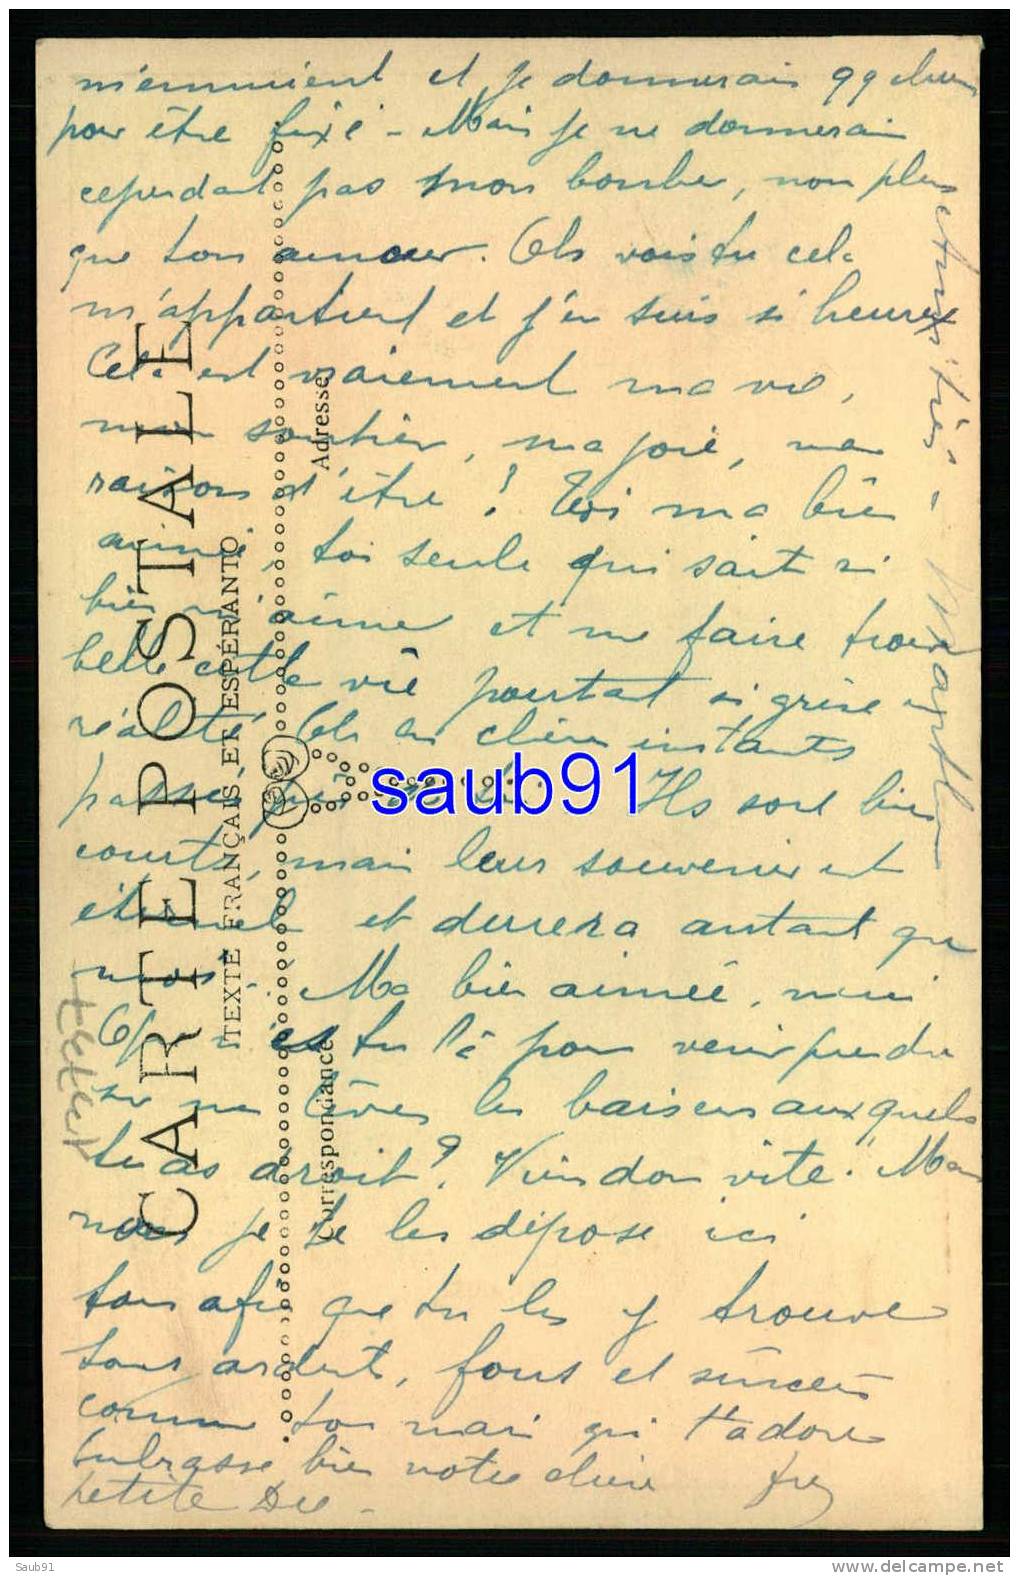 m'ennuient et je donnerais 99 
pour être fixé - Mais je ne donnerais
cependant pas mon bonheur, non plus
que ton amour. Oh vois tu cela
m'appartient et j'en suis si heureux
Cela est vraiement ma vie,
mon soutien, ma joie, ma
raison d'être ! Toi ma bien
aimée, toi seule qui sait si
bien m'aimer et me faire trouver
belle cette vie pourtant si grise en
réalité Oh ces chers instants
passés Ils sont bien
courts, mais leur souvenir est
éternel et durera autant que
nous. Ma bien aimée, mimi
n'es tu là pour venir prendre
sur mes lèvres les baisers auxquels
tu as droit ? Viens donc vite. Mais
non je te les dépose ici
tous afin que tu les y trouve
tous ardents, fous et sincères
comme ton mari qui t'adore
Embrasse bien notre chère
petite Dée -
CARTE POSTALE
TEXTE FRANÇAIS ET ESPÉRANTO
Correspondance
Adresse
saub91
Saub91
www.delcampe.net